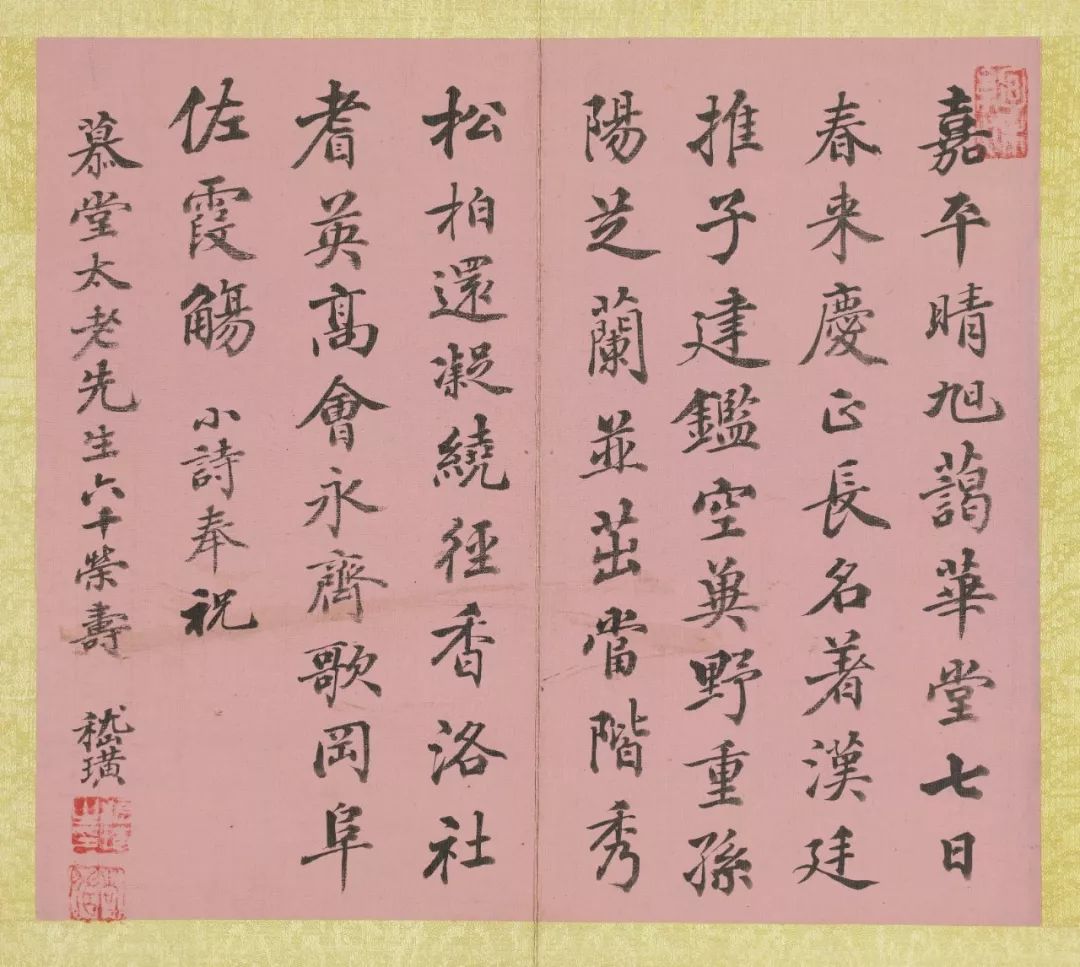 嘉平晴旭藹華堂七日
春来慶正長名著漢廷
推子建鑑空冀野重孫
陽芝蘭並茁當階秀
松柏還凝繞徑香洛社
耆英髙會永齊歌岡阜
佐霞觴 小詩奉祝
慕堂太老先生六十榮壽 嵇璜